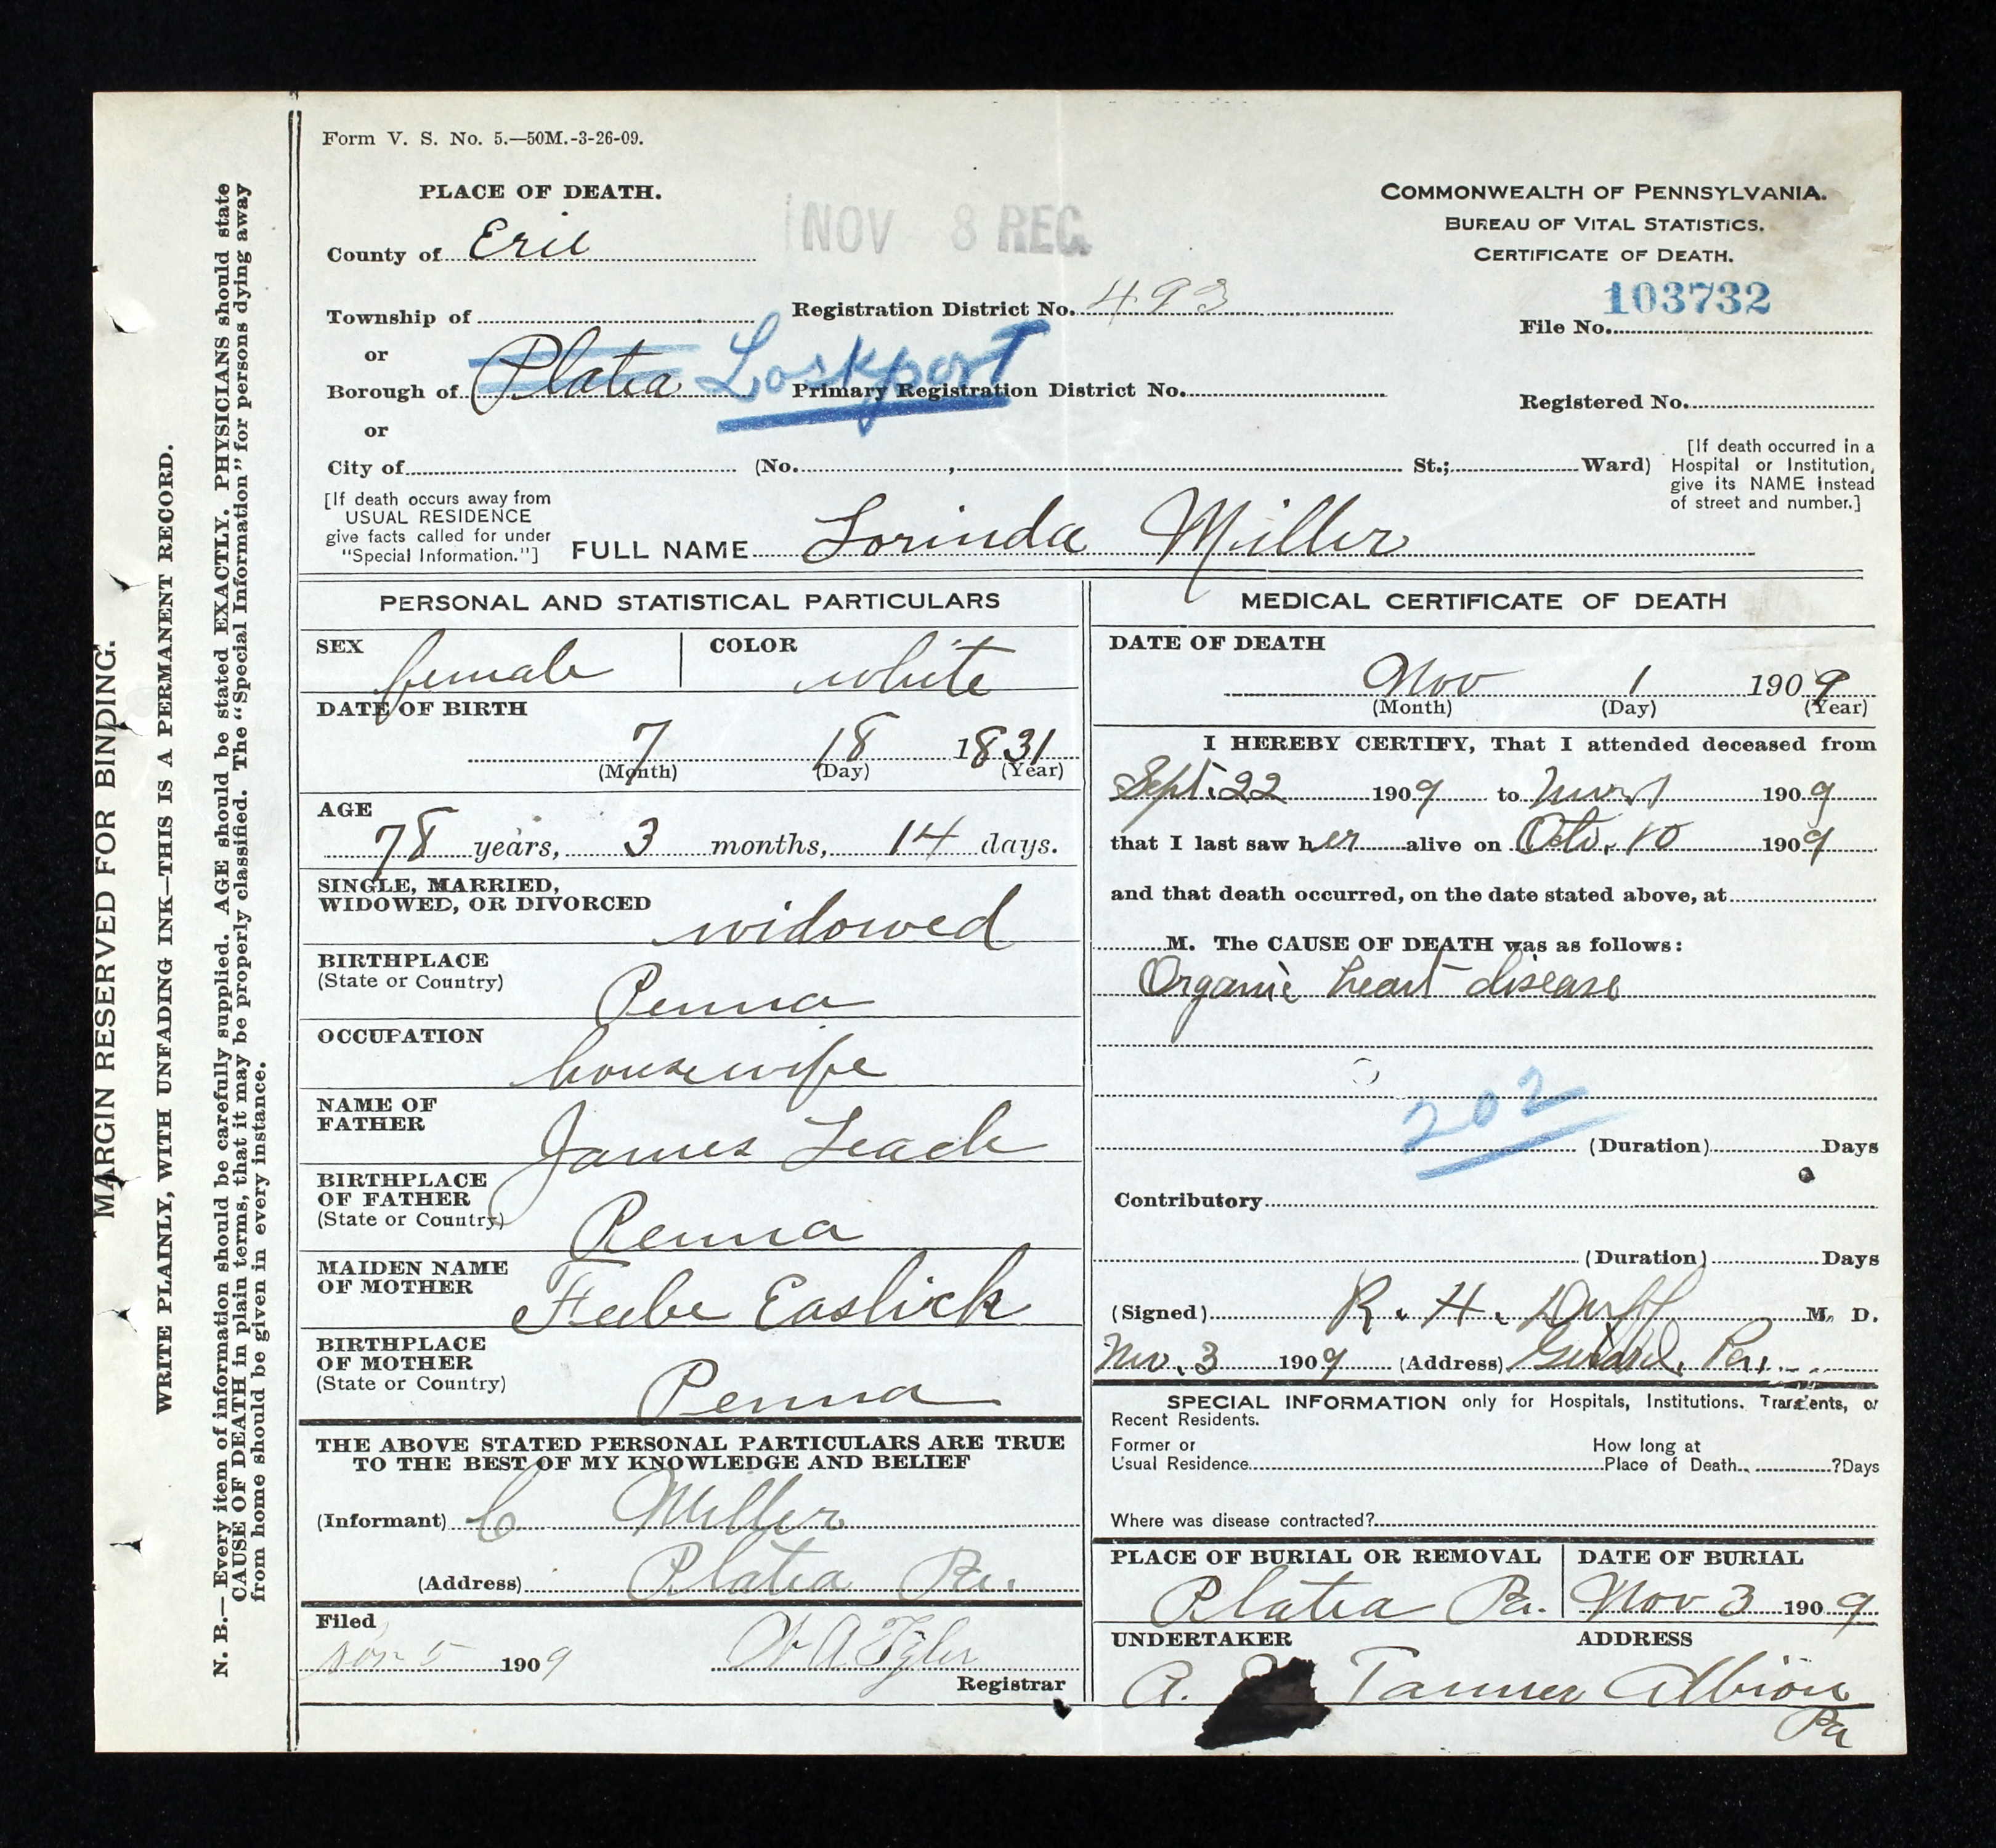 Form V. S. No. 5.—50M.-3-26-09.
PLACE OF DEATH.
County of Erie
NOV 8 REC.
COMMONWEALTH OF PENNSYLVANIA.
BUREAU OF VITAL STATISTICS.
CERTIFICATE OF DEATH.
103732
File No.
Township of
Registration District No. 493
or
Borough of Platea Lockport
Primary Registration District No.
Registered No.
or
City of (No. , St.; Ward)
[If death occurred in a
Hospital or Institution,
give its NAME instead
of street and number.]
[If death occurs away from
USUAL RESIDENCE
give facts called for under
"Special Information."]
FULL NAME Lorinda Miller
PERSONAL AND STATISTICAL PARTICULARS
SEX female
COLOR white
DATE OF BIRTH
7 18 1831
(Month) (Day) (Year)
AGE
78 years, 3 months, 14 days.
SINGLE, MARRIED,
WIDOWED, OR DIVORCED widowed
BIRTHPLACE
(State or Country) Penna
OCCUPATION
housewife
NAME OF
FATHER James Leach
BIRTHPLACE
OF FATHER
(State or Country) Penna
MAIDEN NAME
OF MOTHER Feebe Easlick
BIRTHPLACE
OF MOTHER
(State or Country) Penna
THE ABOVE STATED PERSONAL PARTICULARS ARE TRUE
TO THE BEST OF MY KNOWLEDGE AND BELIEF
(Informant) C Miller
(Address) Platea Pa.
Filed
Nov 5 1909 Tyler
Registrar
MEDICAL CERTIFICATE OF DEATH
DATE OF DEATH
Nov 1 1909
(Month) (Day) (Year)
I HEREBY CERTIFY, That I attended deceased from
Sept. 22 1909 to Nov. 1 1909
that I last saw her alive on Oct. 10 1909
and that death occurred, on the date stated above, at
M. The CAUSE OF DEATH was as follows:
Organic heart disease
202
(Duration) Days
Contributory
(Duration) Days
(Signed) R. H. Duff M. D.
Nov. 3 1909 (Address) Girard, Pa.
SPECIAL INFORMATION only for Hospitals, Institutions. Transients, or
Recent Residents.
Former or
Usual Residence
How long at
Place of Death ?Days
Where was disease contracted?
PLACE OF BURIAL OR REMOVAL
Platea Pa.
DATE OF BURIAL
Nov 3 1909
UNDERTAKER
ADDRESS
A. Tanner Albion
Pa
MARGIN RESERVED FOR BINDING.
WRITE PLAINLY, WITH UNFADING INK—THIS IS A PERMANENT RECORD.
N. B.—Every item of information should be carefully supplied. AGE should be stated EXACTLY. PHYSICIANS should state
CAUSE OF DEATH in plain terms, that it may be properly classified. The "Special Information" for persons dying away
from home should be given in every instance.